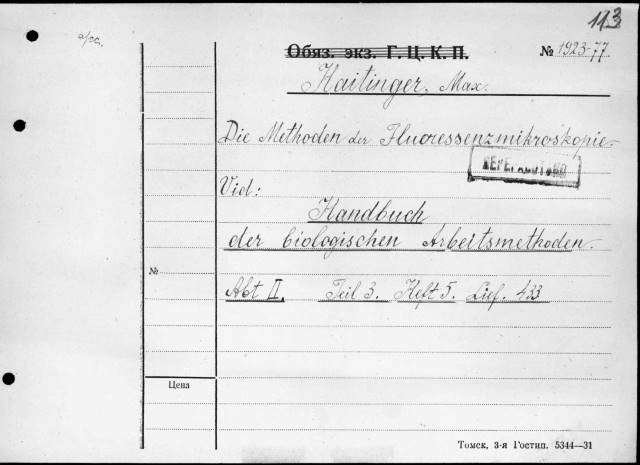 113
Обяз. экз. Г. Ц. К. П.
№ 1923-77
Haitinger, Max.
Die Methoden der Fluoressenzmikroskopie
Vid:
Handbuch
der biologischen Arbeitsmethoden.
№
Abt II. Teil 3. Heft 5. Lief. 433
Цена
Томск, 3-я Гостип. 5344—31